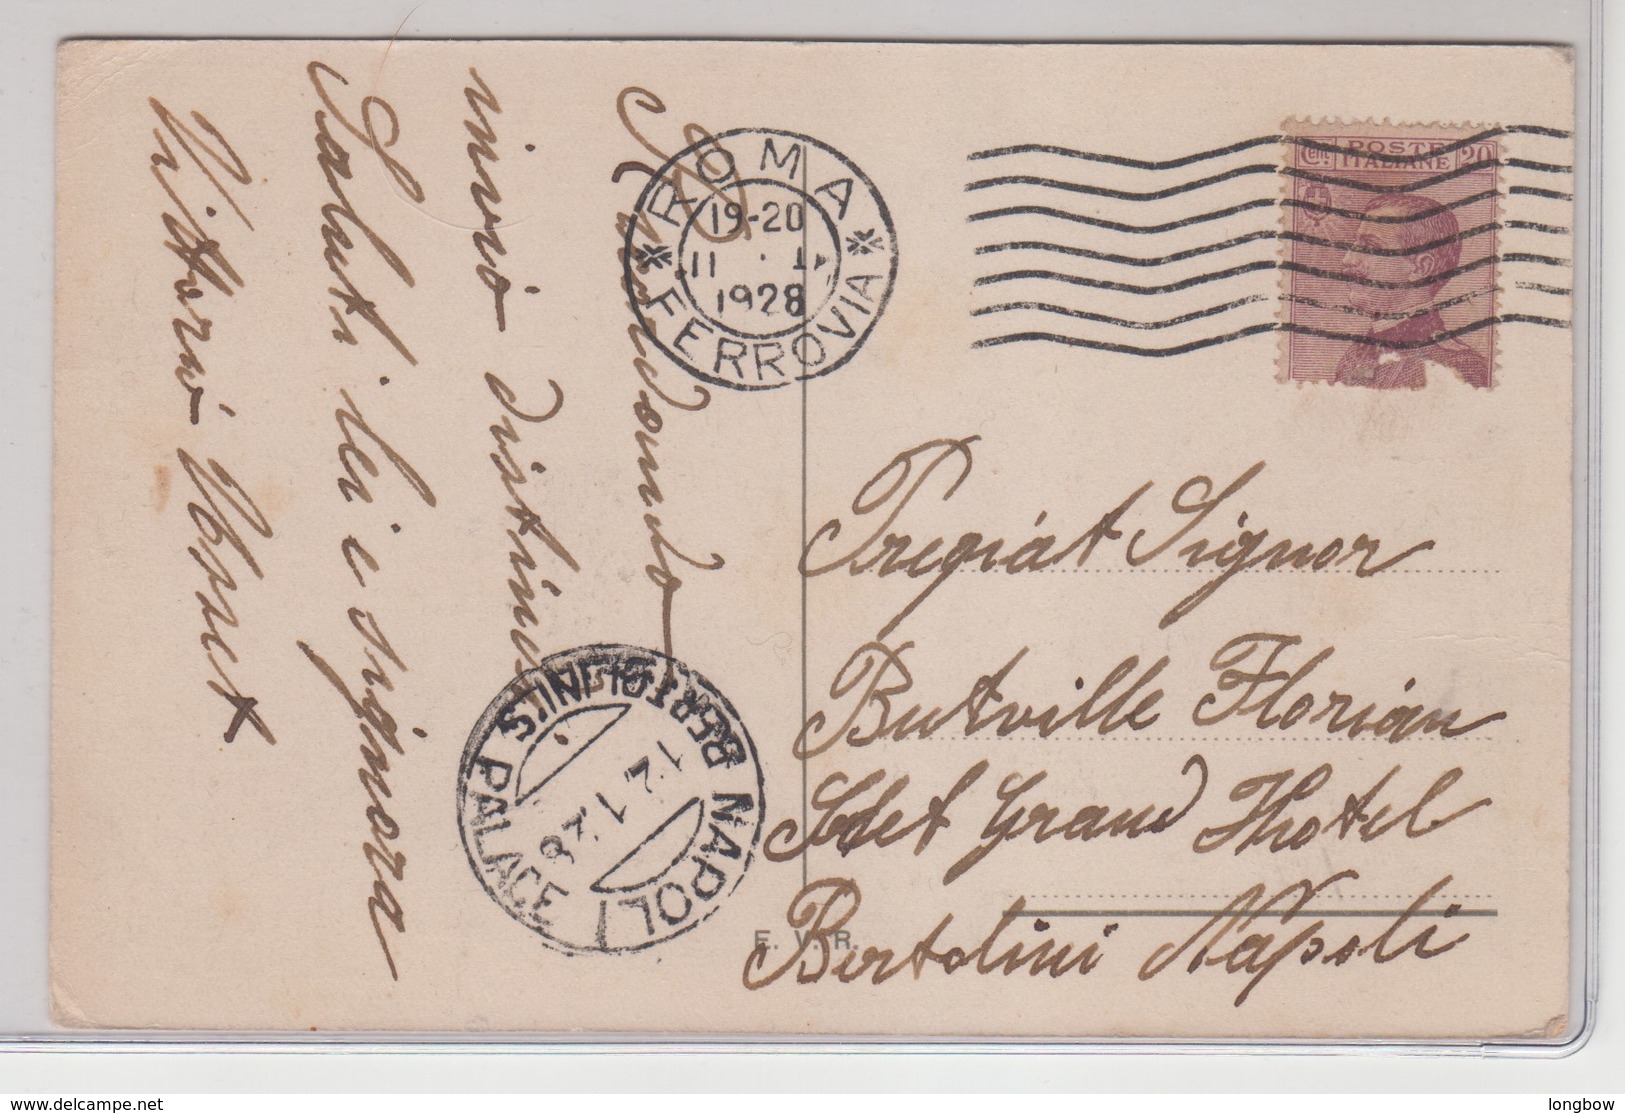 Ricordando
invio distinti
Saluti lei e signora
Vittorio
ROMA
FERROVIA
19-20
11 . I
1928
POSTE
ITALIANE
Cent. 20
Pregiat Signor
Butville Florian
det Grand Hotel
Bertolini Napoli
NAPOLI
BERTOLINI'S PALACE
12.1.28
E. V. R.
www.delcampe.net
longbow